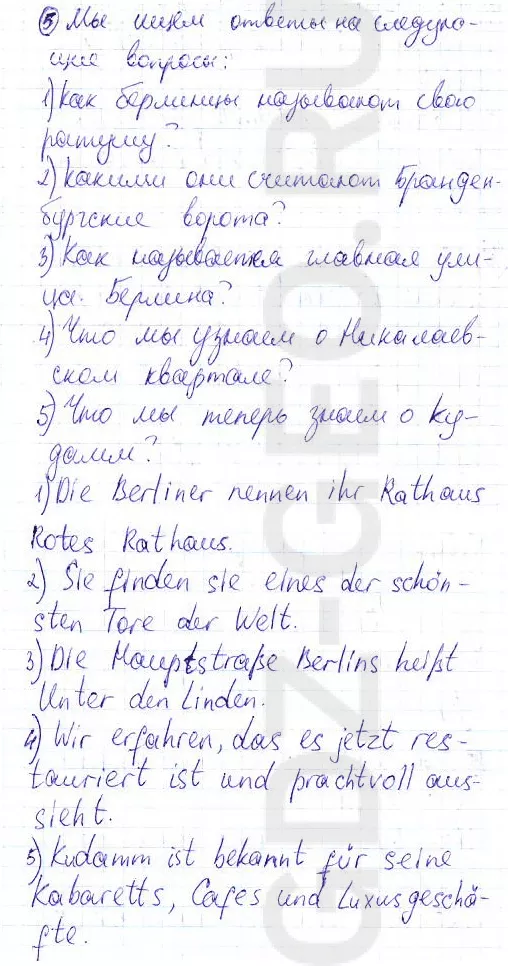 5) Мы ищем ответы на следую-
щие вопросы:
1) Как берлинцы называют свою
ратушу?
2) Какими они считают Бранден-
бургские ворота?
3) Как называется главная ули-
ца Берлина?
4) Что мы узнаем о Николаев-
ском квартале?
5) Что мы теперь знаем о Ку-
дамм?
1) Die Berliner nennen ihr Rathaus
Rotes Rathaus.
2) Sie finden sie eines der schön-
sten Tore der Welt.
3) Die Hauptstraße Berlins heißt
Unter den Linden.
4) Wir erfahren, das es jetzt res-
tauriert ist und prachtvoll aus-
sieht.
5) Kudamm ist bekannt für seine
Kabaretts, Cafes und Luxusgeschä-
fte.
GDZ-GEO.RU